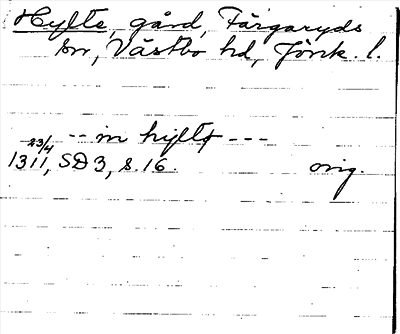 Hylte, gård, Färgaryds
sn, Västbo hd, Jönk. l.
-- in hylte ---
23/4
1311, SD 3, s. 16. orig.